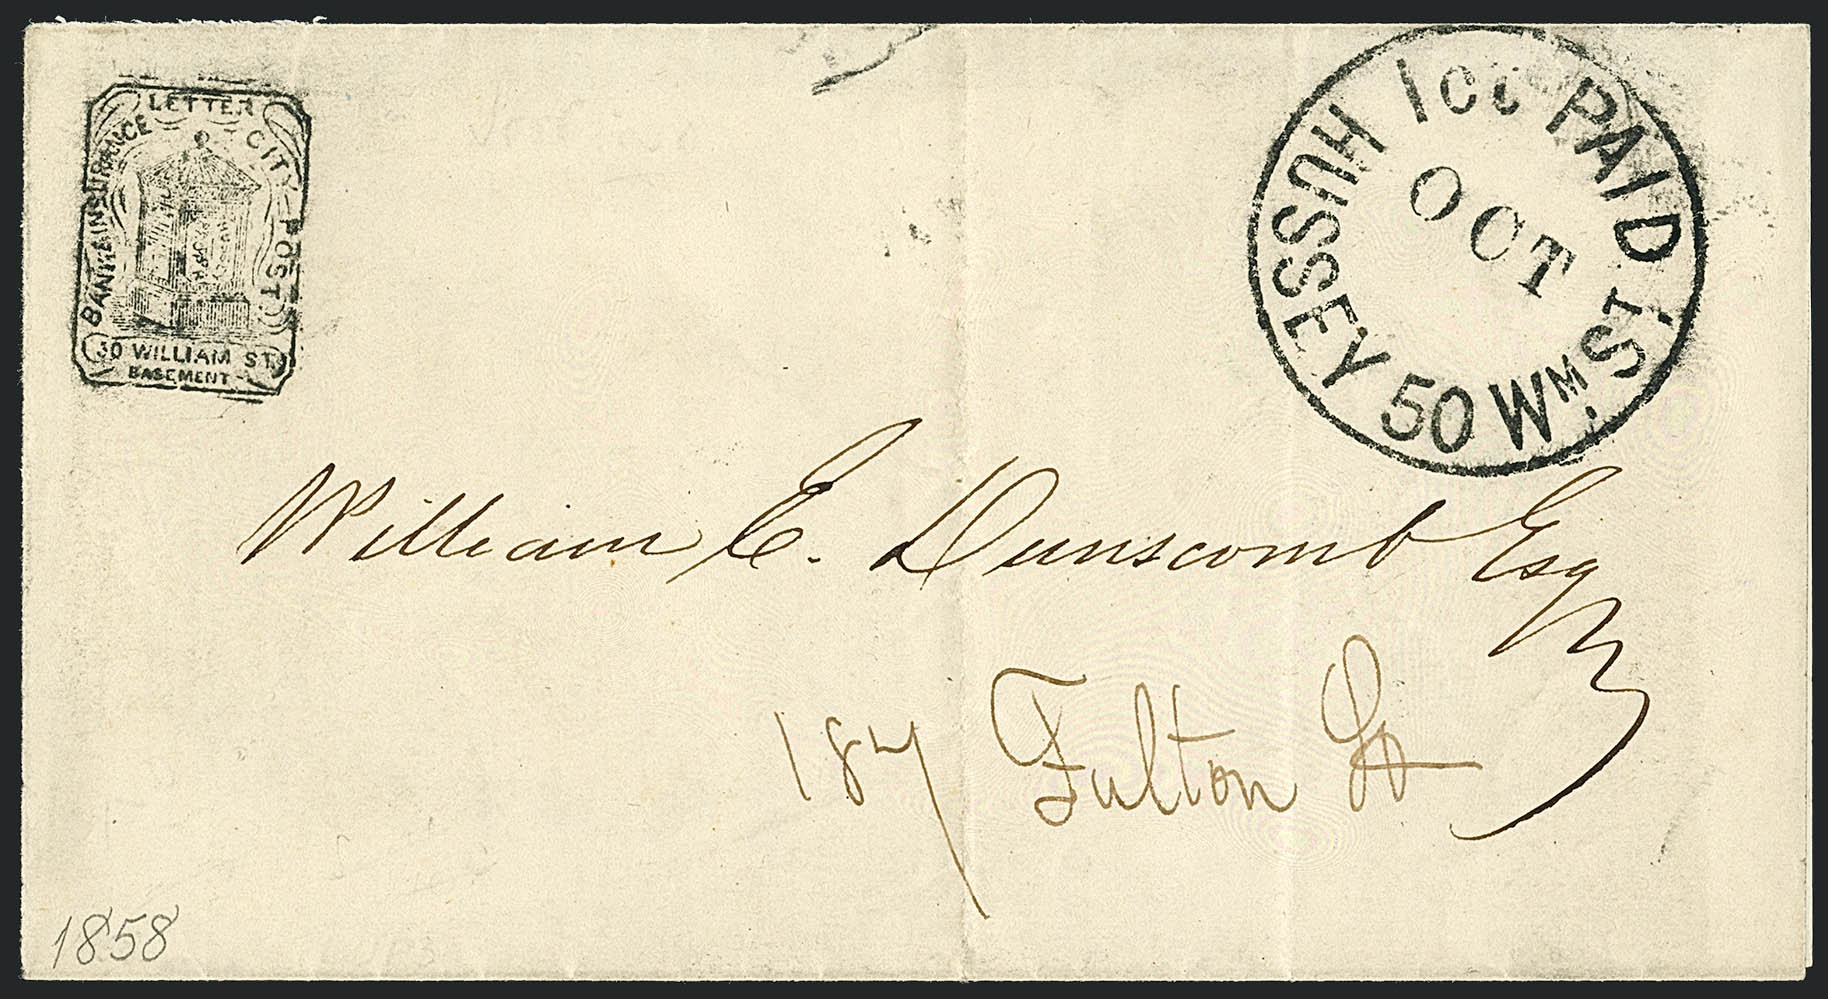 LETTER
BANK & INSURANCE
CITY POST
50 WILLIAM ST.
BASEMENT
HUSSEY 50 Wm ST.
1ct PAID
OCT
William E. Dunscomb Esq
187 Fulton St
1858